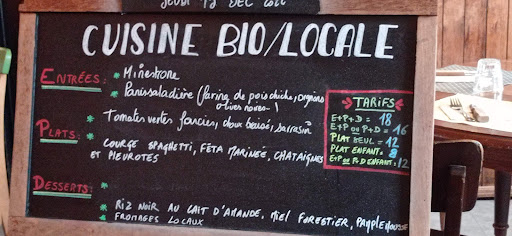 JEUDI 15 DEC 2022
CUISINE BIO/LOCALE
ENTRÉES: * Minestrone
* Panissaladière (farine de pois chiche, oignons
olives noires !
PLATS: * Tomates vertes farcies, choux braisé, sarrasin
* COURGE SPAGHETTI, FÉTA MARINÉE, CHATAIGNES
ET PLEUROTES
DESSERTS: *
* RIZ NOIR AU LAIT D'AMANDE, MIEL FORESTIER, PAMPLEMOUSSE
* FROMAGES LOCAUX
→ TARIFS ←
E+P+D = 18
E+P OU P+D = 16
PLAT SEUL = 12
PLAT ENFANT: 8
E+P OU P+D ENFANT: 12